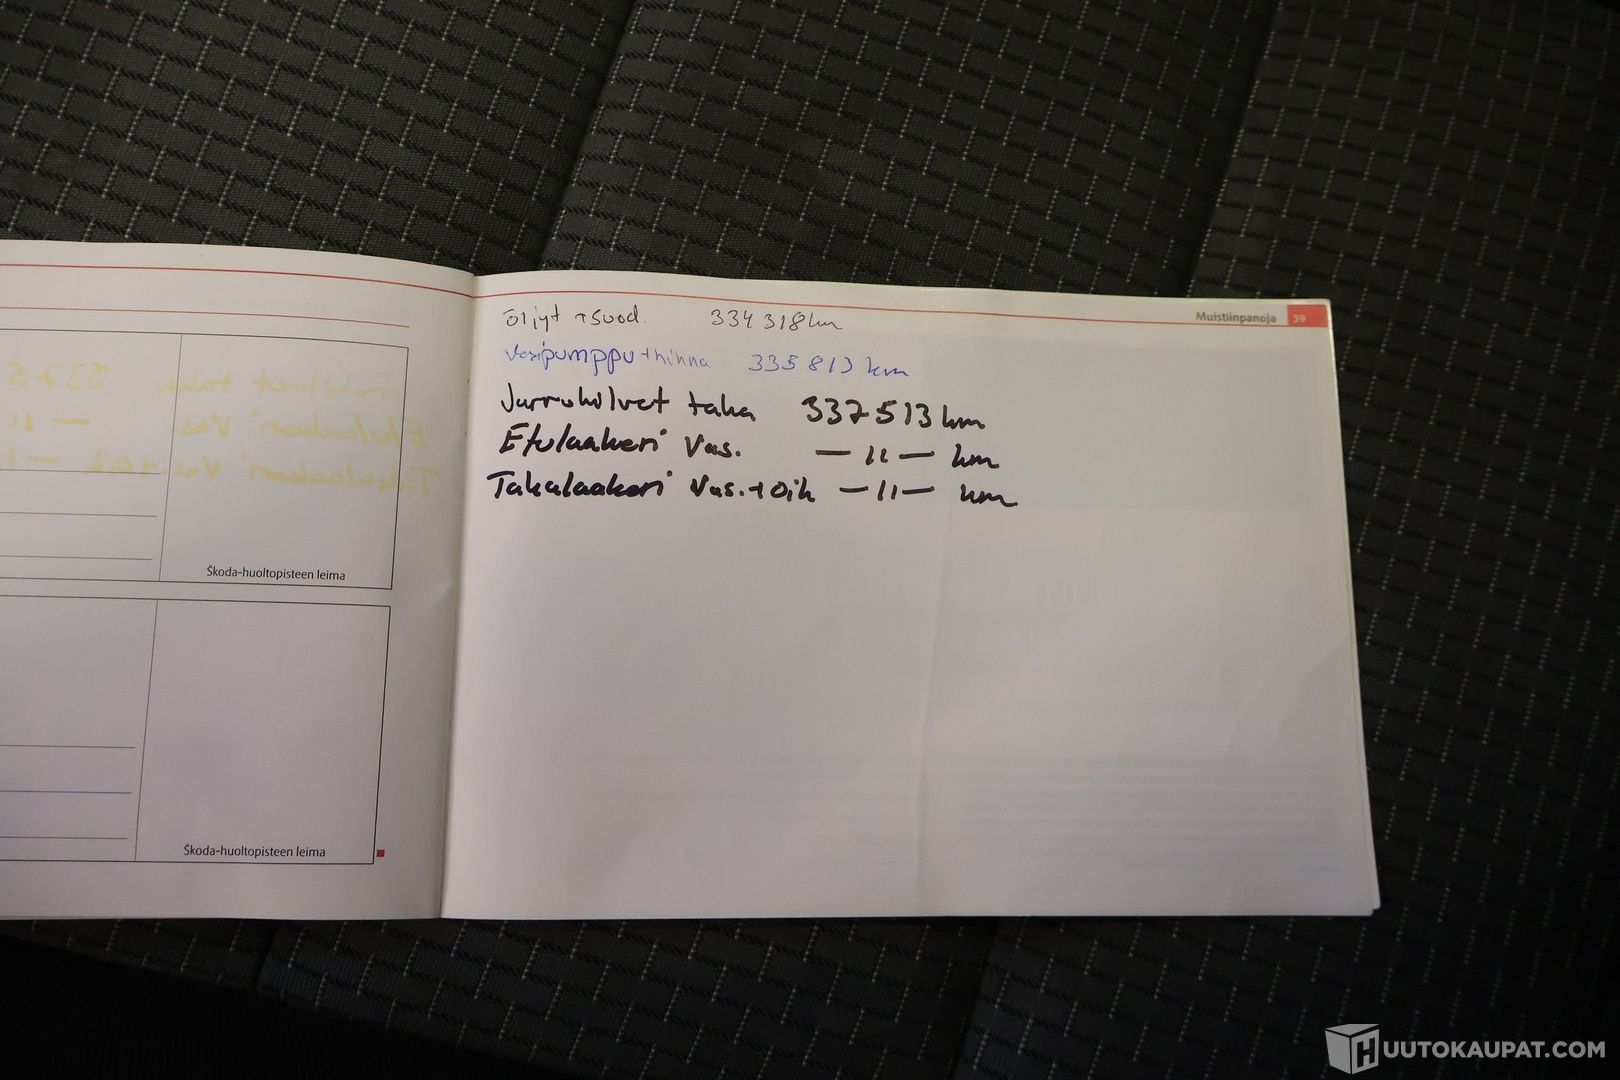 Muistiinpanoja 39
Öljyt +suod. 334 318 km
Vesipumppu + hihna 335 813 km
Jarrukilvet taka 337513 km
Etulaakeri Vas. —11— km
Takalaakeri Vas.+oik —11— km
Škoda-huoltopisteen leima
Škoda-huoltopisteen leima
HUUTOKAUPAT.COM